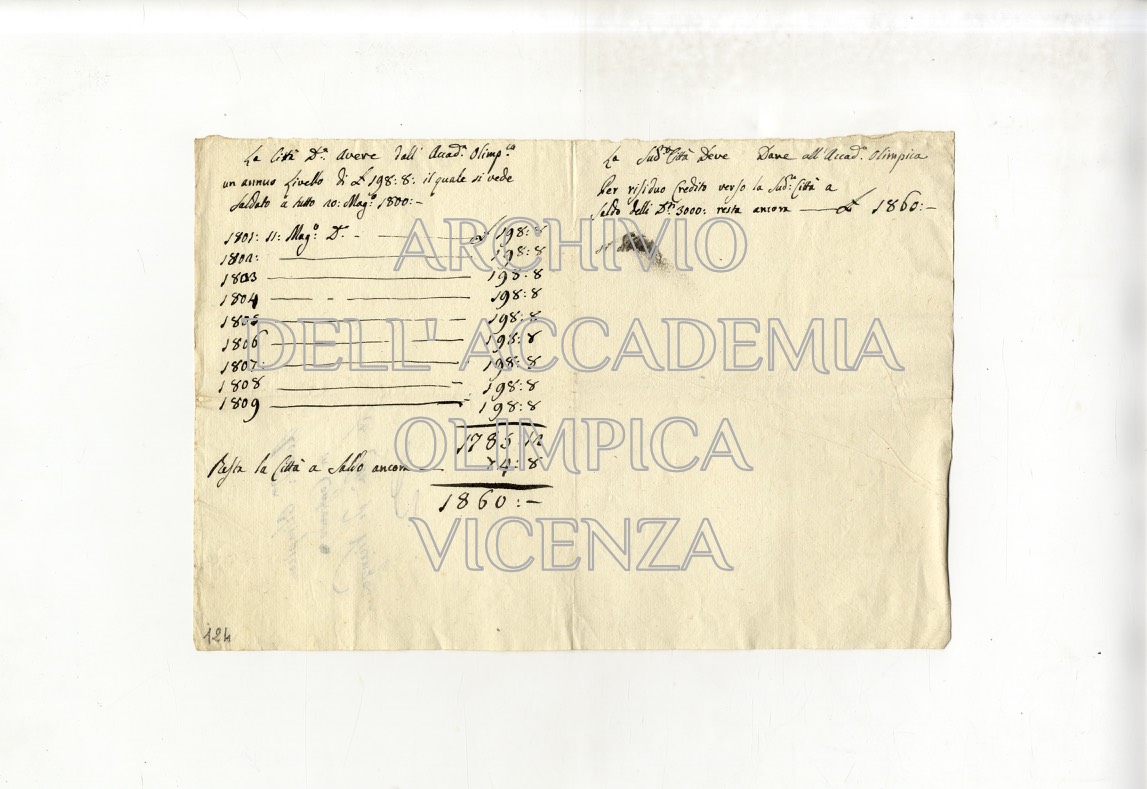 La Città D.ª avere dall' Accad.ª Olimp.ca
un annuo Livello di L 198:8: il quale si vede
Saldato a tutto 10: Mag.º 1800:-
1801: 11: Mag.º D.ª - L 198:8
1802: 198:8
1803 198:8
1804 198:8
1805 198:8
1806 198:8
1807: 198:8
1808 198:8
1809 198:8
1785:12
Resta la Città a Saldo ancora 74:8
1860:-
La Sud.ta Città Deve Dare all' Accad.ª Olimpica
Per residuo Credito verso la Sud.ta Città a
Saldo delli D.ti 3000: resta ancora L 1860:-
124
ARCHIVIO
DELL'ACCADEMIA
OLIMPICA
VICENZA